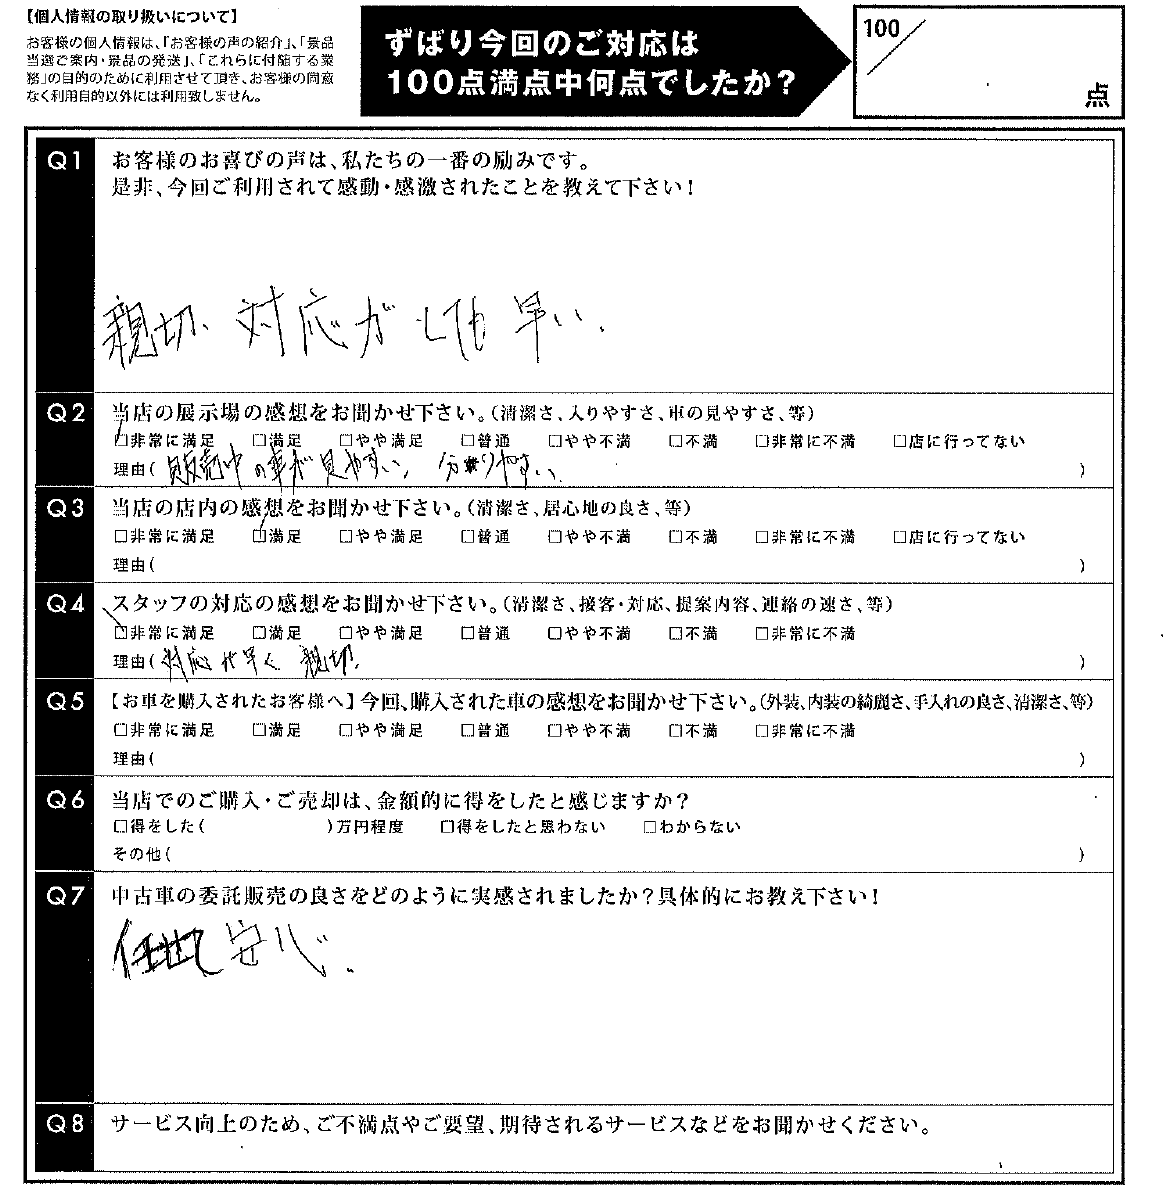 【個人情報の取り扱いについて】
お客様の個人情報は、「お客様の声の紹介」、「景品
当選ご案内・景品の発送」、「これらに付随する業
務」の目的のために利用させて頂き、お客様の同意
なく利用目的以外には利用致しません。
ずばり今回のご対応は
100点満点中何点でしたか？
100
点
Q1 お客様のお喜びの声は、私たちの一番の励みです。
是非、今回ご利用されて感動・感激されたことを教えて下さい！
親切、対応がとても早い。
Q2 当店の展示場の感想をお聞かせ下さい。（清潔さ、入りやすさ、車の見やすさ、等）
□非常に満足 □満足 □やや満足 □普通 □やや不満 □不満 □非常に不満 □店に行ってない
理由（ 販売中の車が見やすい、分かりやすい。 ）
Q3 当店の店内の感想をお聞かせ下さい。（清潔さ、居心地の良さ、等）
□非常に満足 □満足 □やや満足 □普通 □やや不満 □不満 □非常に不満 □店に行ってない
理由（ ）
Q4 スタッフの対応の感想をお聞かせ下さい。（清潔さ、接客・対応、提案内容、連絡の速さ、等）
□非常に満足 □満足 □やや満足 □普通 □やや不満 □不満 □非常に不満
理由（ 対応が早く、親切。 ）
Q5 【お車を購入されたお客様へ】今回、購入された車の感想をお聞かせ下さい。（外装、内装の綺麗さ、手入れの良さ、清潔さ、等）
□非常に満足 □満足 □やや満足 □普通 □やや不満 □不満 □非常に不満
理由（ ）
Q6 当店でのご購入・ご売却は、金額的に得をしたと感じますか？
□得をした（ ）万円程度 □得をしたと思わない □わからない
その他（ ）
Q7 中古車の委託販売の良さをどのように実感されましたか？具体的にお教え下さい！
任せて安心。
Q8 サービス向上のため、ご不満点やご要望、期待されるサービスなどをお聞かせください。